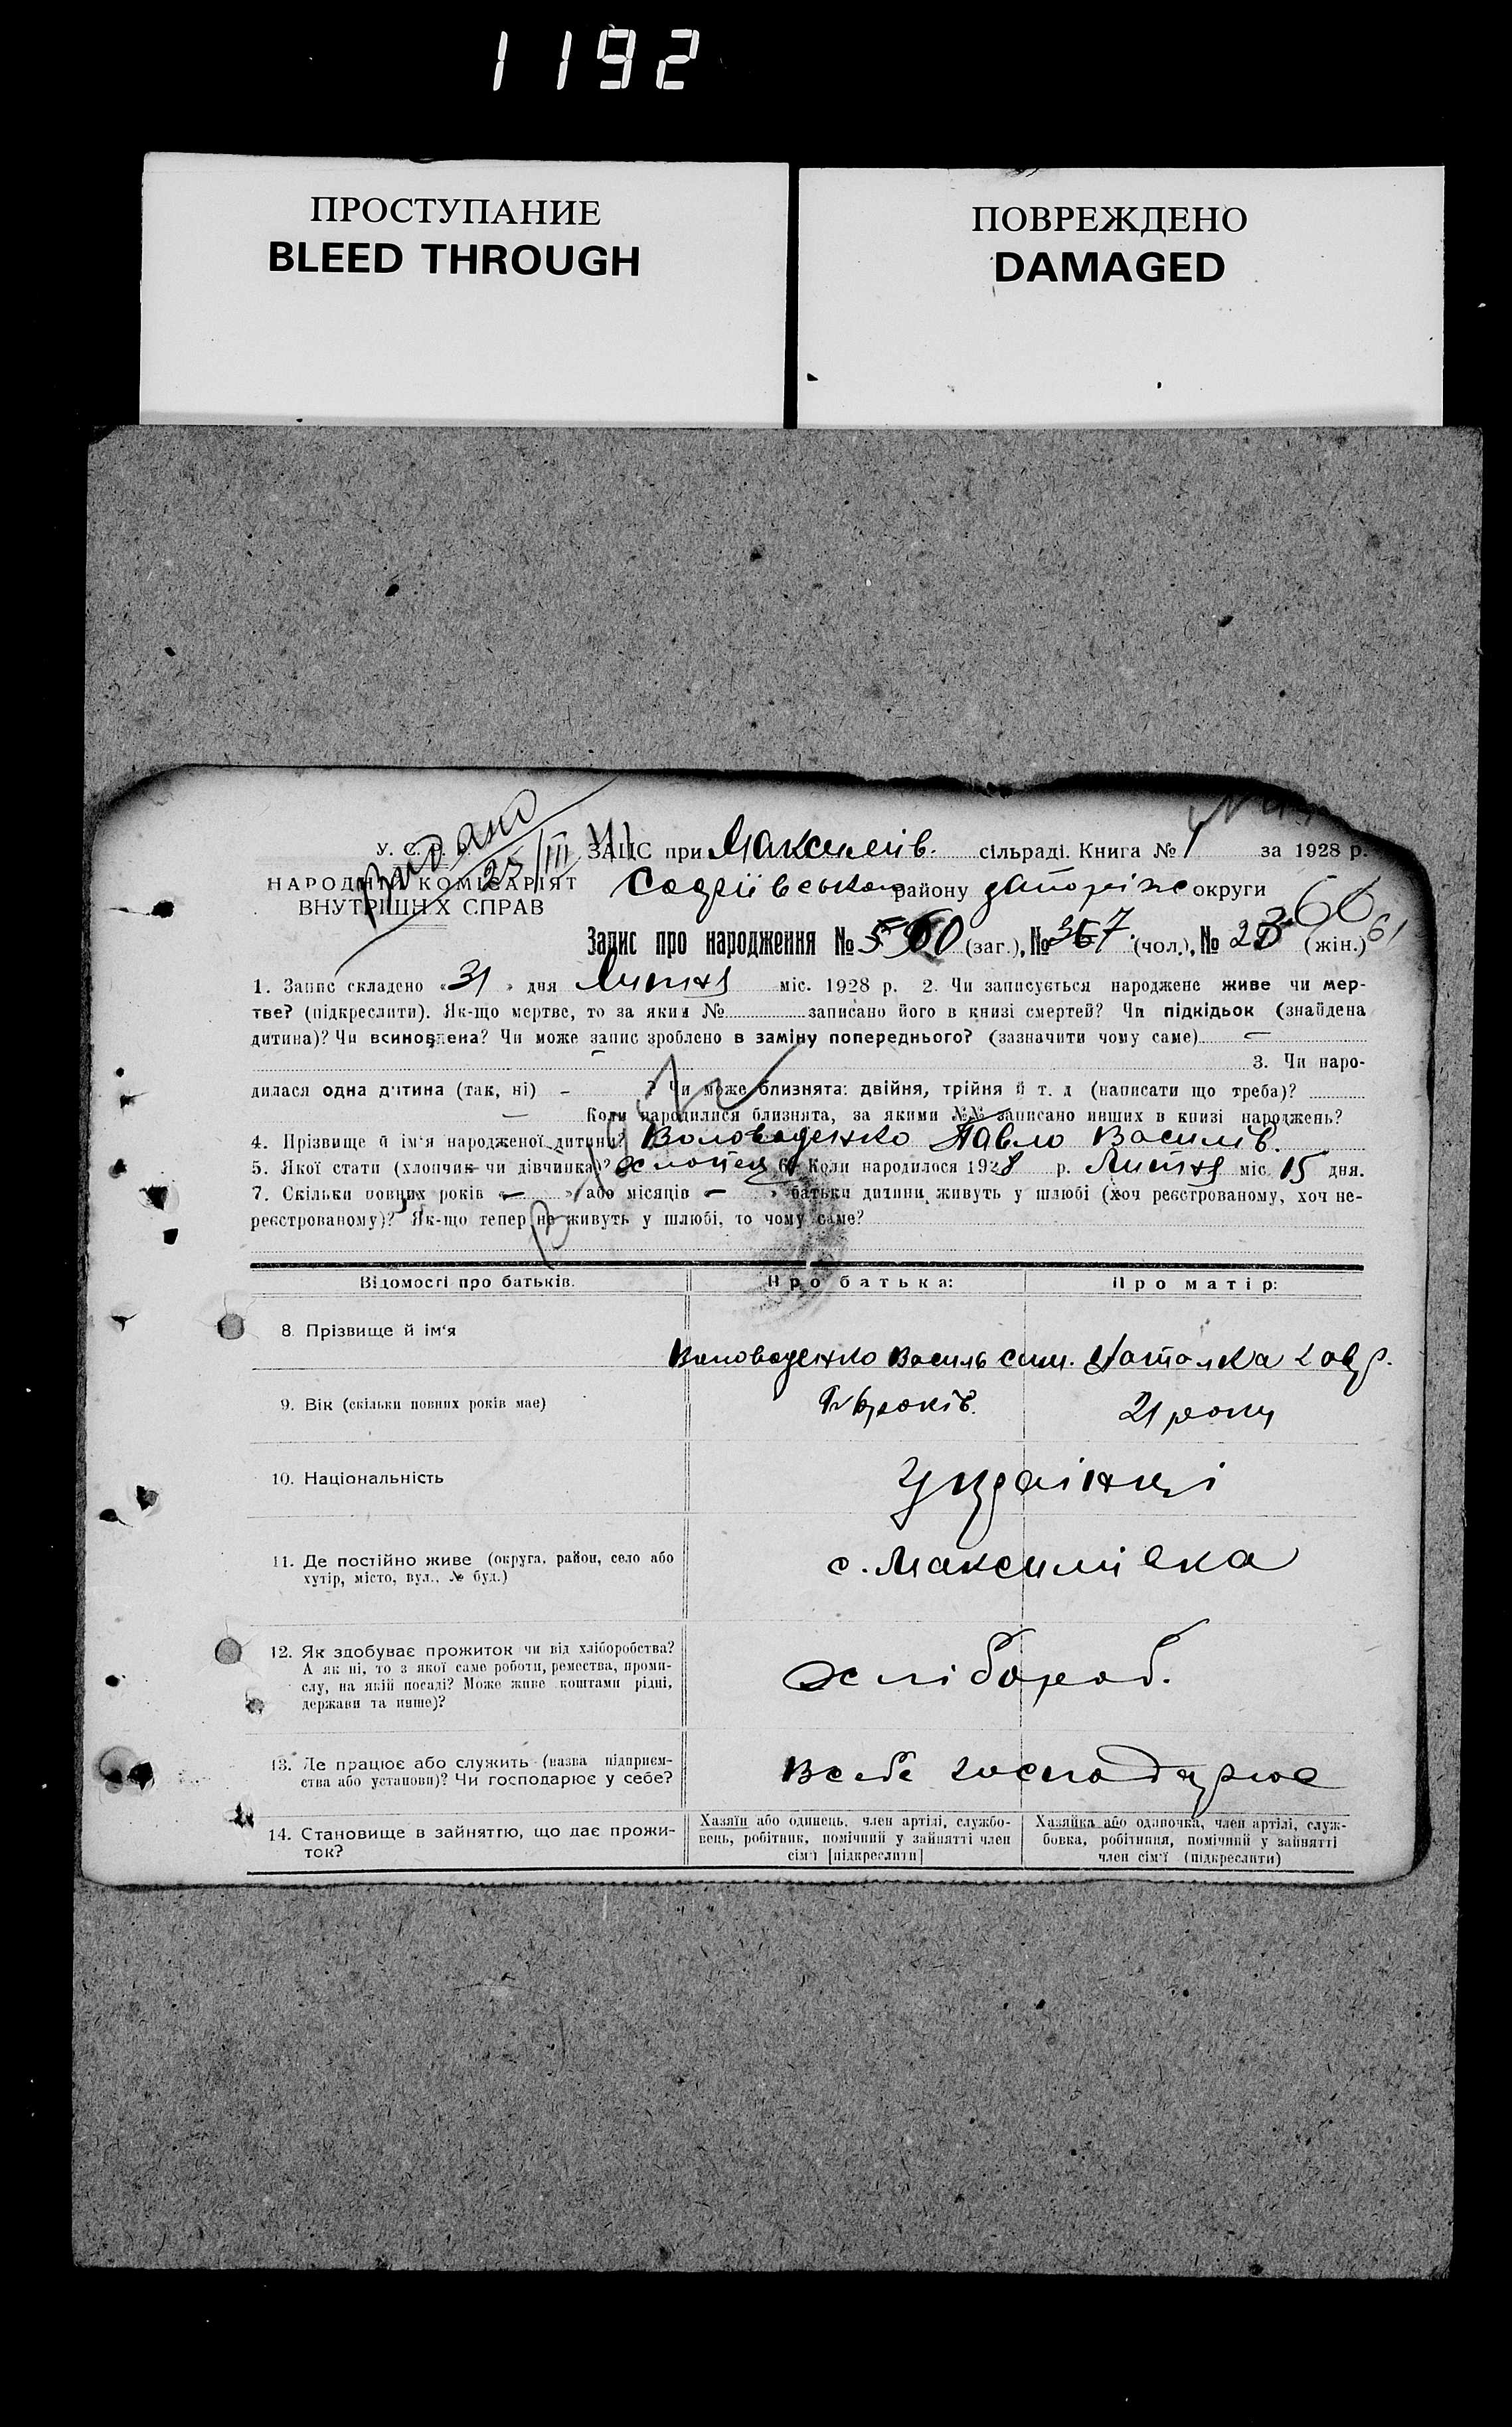 1192
ПРОСТУПАНИЕ
BLEED THROUGH
ПОВРЕЖДЕНО
DAMAGED
Видано
25/III
У. С. Р. Р.
НАРОДНІЙ КОМІСАРІЯТ
ВНУТРІШНІХ СПРАВ
ЗАЦС при Максимів. сільраді. Книга № 1 за 1928 р.
району Запоріж округи
Запис про народження № (заг.), № 367 (чол.), № (жін.) 61
1. Запис складено «31» дня Липня міс. 1928 р. 2. Чи записується народжене живе чи мер-
тве? (підкреслити). Як-що мертве, то за яким № записано його в книзі смертей? Чи підкідьок (знайдена
дитина)? Чи всиновлена? Чи може запис зроблено в заміну попереднього? (зазначити чому саме) —
3. Чи наро-
дилася одна дитина (так, ні) – ? Чи може близнята: двійня, трійня й т. д (написати що треба)?
— Коли народилися близнята, за якими №№ записано инших в книзі народжень?
4. Прізвище й ім'я народженої дитини? Воловоденко Павло Василів.
5. Якої стати (хлопчик чи дівчинка)? Хлопец 6. Коли народилося 1928 р. Липня міс. 15 дня.
7. Скільки повних років «—» або місяців «—» батьки дитини живуть у шлюбі (хоч реєстрованому, хоч не-
реєстрованому)? Як-що тепер не живуть у шлюбі, то чому саме?
Відомості про батьків. Про батька: Про матір:
8. Прізвище й ім'я
Воловоденко Василь Наталка
9. Вік (скільки повних років має) років. 21 року
10. Національність Українці
11. Де постійно живе (округа, район, село або
хутір, місто, вул., № буд.)
с. Максимівка
12. Як здобуває прожиток чи від хліборобства?
А як ні, то з якої саме роботи, ремества, проми-
слу, на якій посаді? Може живе коштами рідні,
держави та инше)?
Хлібороб.
13. Де працює або служить (назва підприєм-
ства або установи)? Чи господарює у себе?
В себе господарює
14. Становище в зайняттю, що дає прожи-
ток?
Хазяїн або одинець, член артілі, службо-
вець, робітник, помічний у зайнятті член
сім'ї [підкреслити]
Хазяйка або одиночка, член артілі, служ-
бовка, робітниця, помічний у зайнятті
член сім'ї (підкреслити)